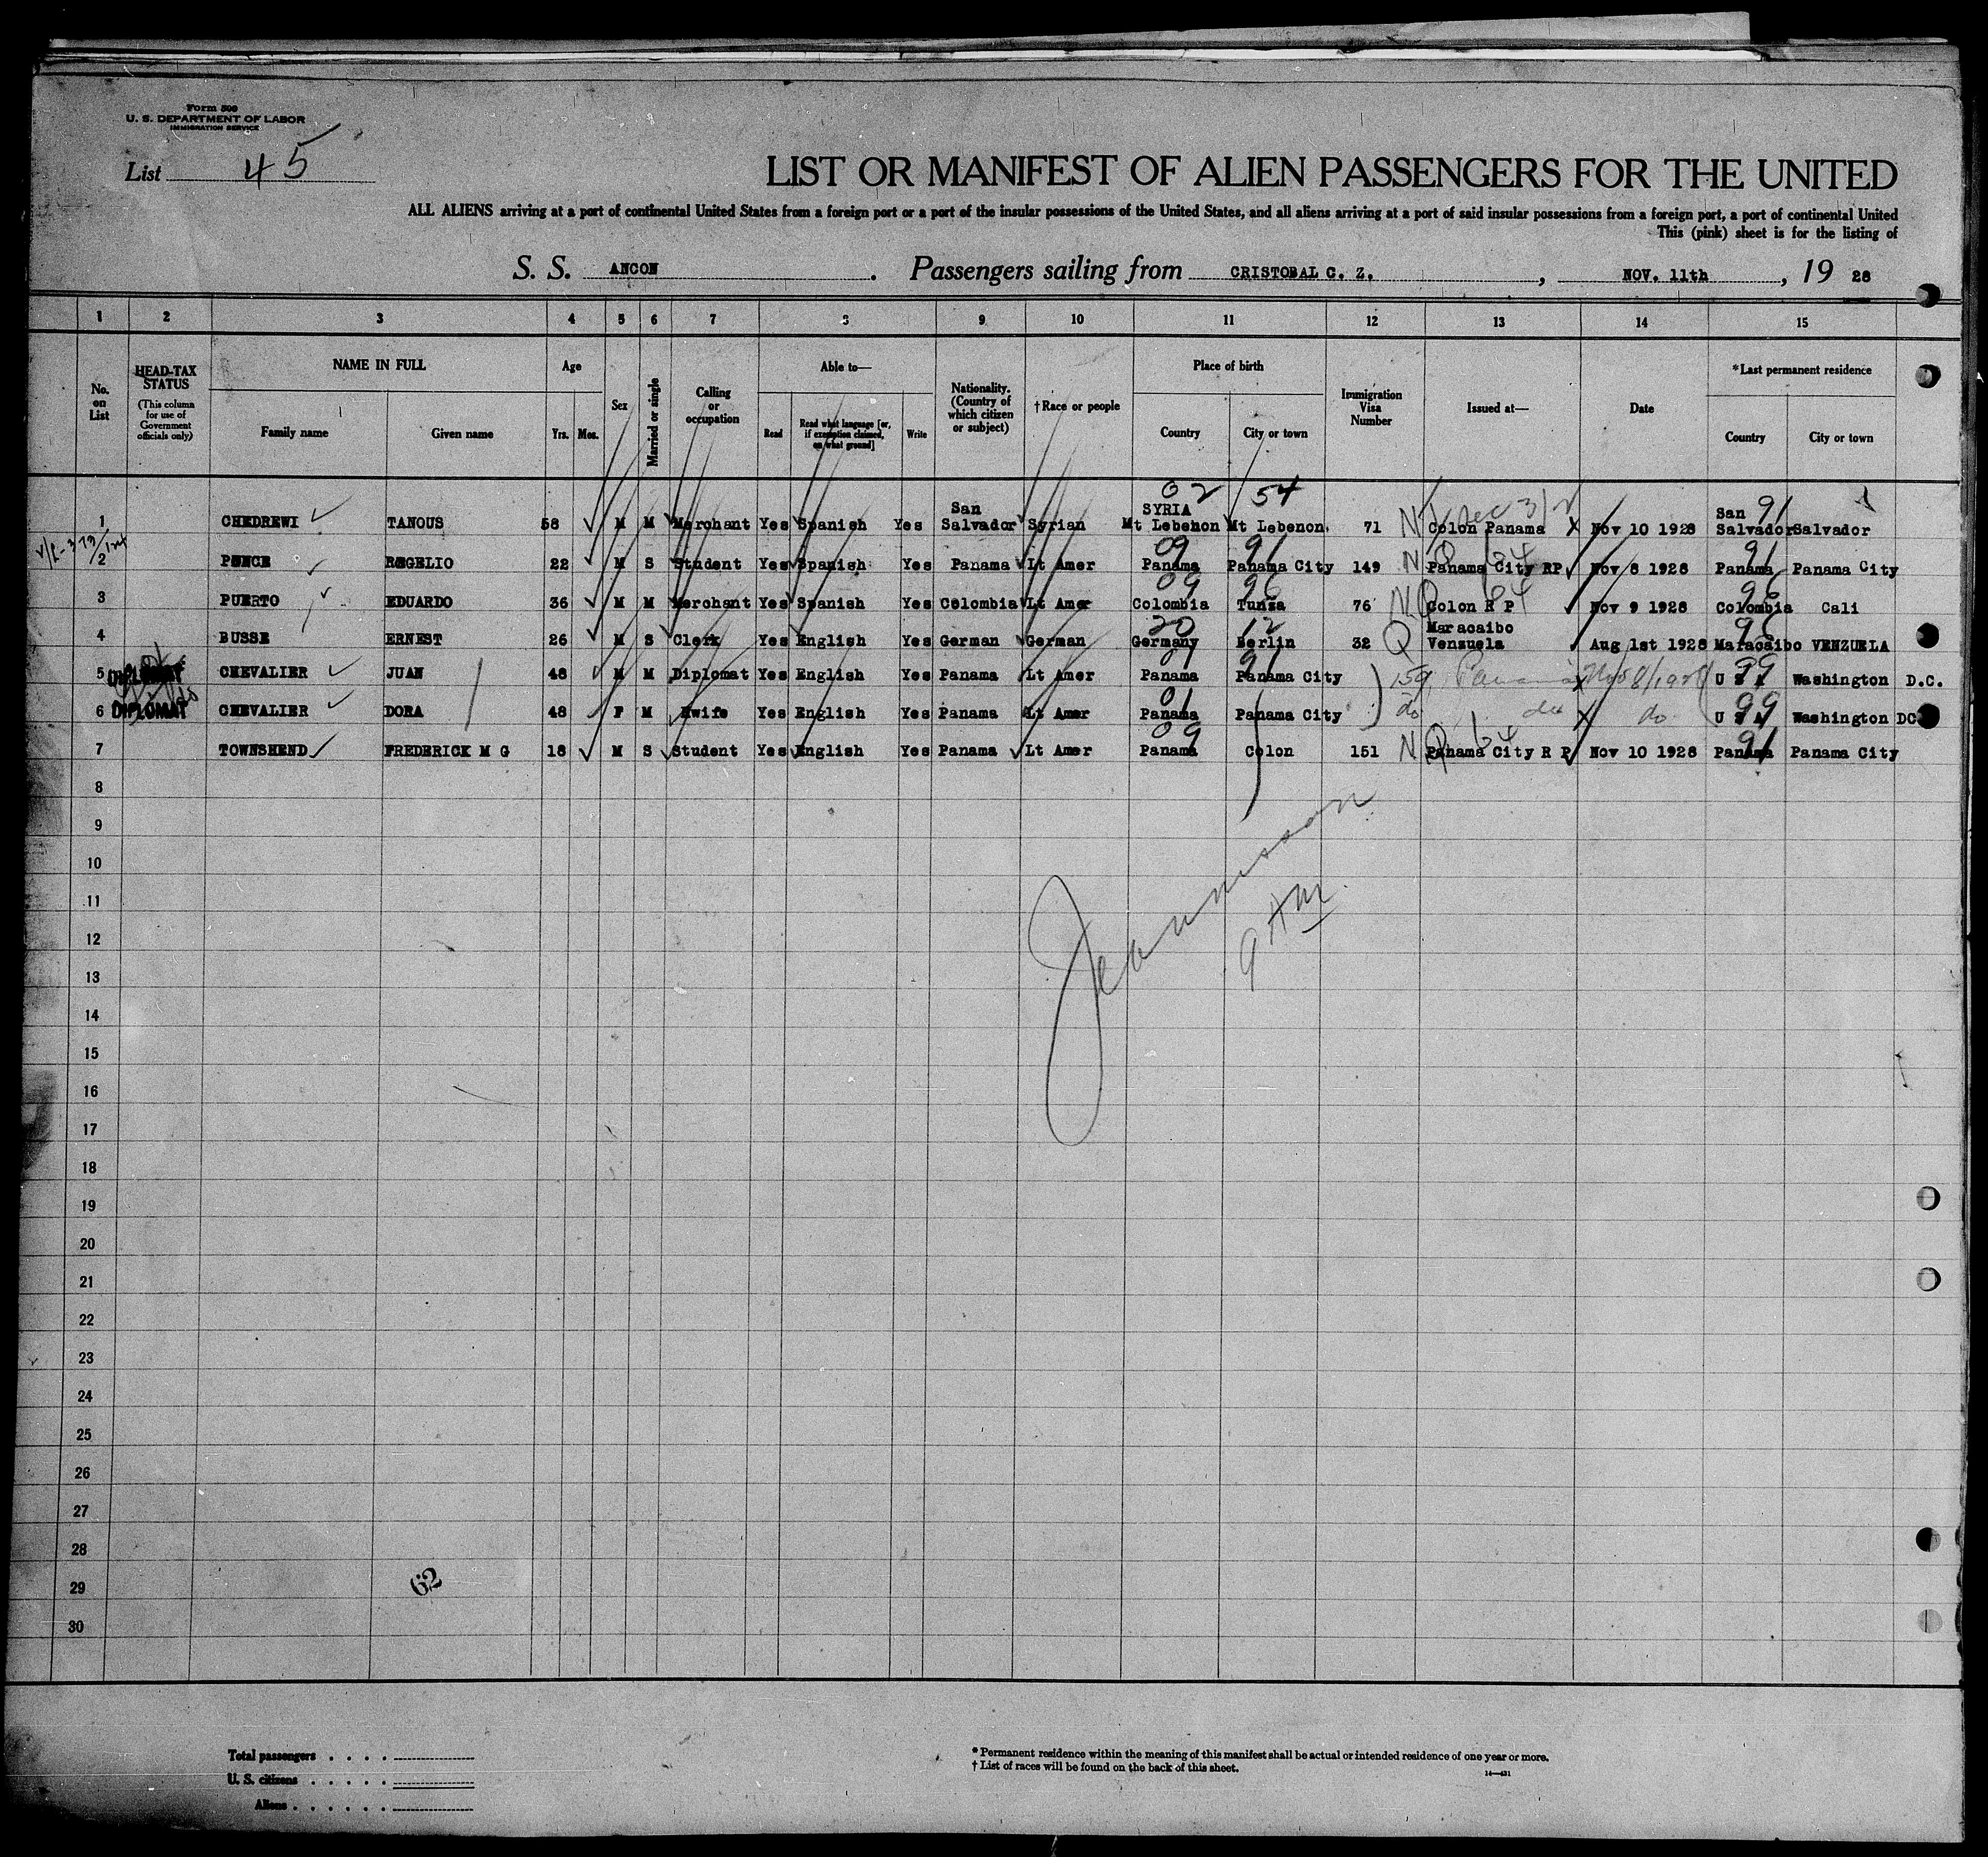 Form 500
U. S. DEPARTMENT OF LABOR
IMMIGRATION SERVICE
List 45
LIST OR MANIFEST OF ALIEN PASSENGERS FOR THE UNITED
ALL ALIENS arriving at a port of continental United States from a foreign port or a port of the insular possessions of the United States, and all aliens arriving at a port of said insular possessions from a foreign port, a port of continental United
This (pink) sheet is for the listing of
S. S. ANCON. Passengers sailing from CRISTOBAL C. Z., NOV. 11th, 19 28
1 2 3 4 5 6 7 8 9 10 11 12 13 14 15
No. on List
HEAD-TAX STATUS (This column for use of Government officials only)
NAME IN FULL Family name Given name
Age Yrs. Mos.
Sex
Married or single
Calling or occupation
Able to— Read Read what language [or, if exemption claimed, on what ground] Write
Nationality. (Country of which citizen or subject)
†Race or people
Place of birth Country City or town
Immigration Visa Number
Issued at—
Date
*Last permanent residence Country City or town
02 54 91
1 CHEDREWI TANOUS 58 M M Merchant Yes Spanish Yes San Salvador Syrian SYRIA Mt Lebenon Mt Lebenon. 71 Colon Panama Nov 10 1928 San Salvador Salvador
09 91 91
2 PONCE ROGELIO 22 M S Student Yes Spanish Yes Panama Lt Amer Panama Panama City 149 NQ Panama City RP Nov 8 1928 Panama Panama City
09 96 96
3 PUERTO EDUARDO 36 M M Merchant Yes Spanish Yes Colombia Lt Amer Colombia Tunza 76 NQ Colon R P Nov 9 1928 Colombia Cali
20 12 96
4 BUSSE ERNEST 26 M S Clerk Yes English Yes German German Germany Berlin 32 Q Maracaibo Venzuela Aug 1st 1928 Maracaibo VENZUELA
01 91 99
5 DIPLOMAT CHEVALIER JUAN 48 M M Diplomat Yes English Yes Panama Lt Amer Panama Panama City 159 Panama Nov 8/1928 U S A Washington D.C.
01 99
6 DIPLOMAT CHEVALIER DORA 48 F M Hwife Yes English Yes Panama Lt Amer Panama Panama City do do do U S A Washington DC
09 64 91
7 TOWNSHEND FREDERICK M G 18 M S Student Yes English Yes Panama Lt Amer Panama Colon 151 NQ Panama City R P Nov 10 1928 Panama Panama City
8
9
10
11
12
13
14
15
16
17
18
19
20
21
22
23
24
25
26
27
28
29
30
62
Total passengers . . . .
U. S. citizens . . . . .
Aliens . . . . . .
* Permanent residence within the meaning of this manifest shall be actual or intended residence of one year or more.
† List of races will be found on the back of this sheet.
14—431